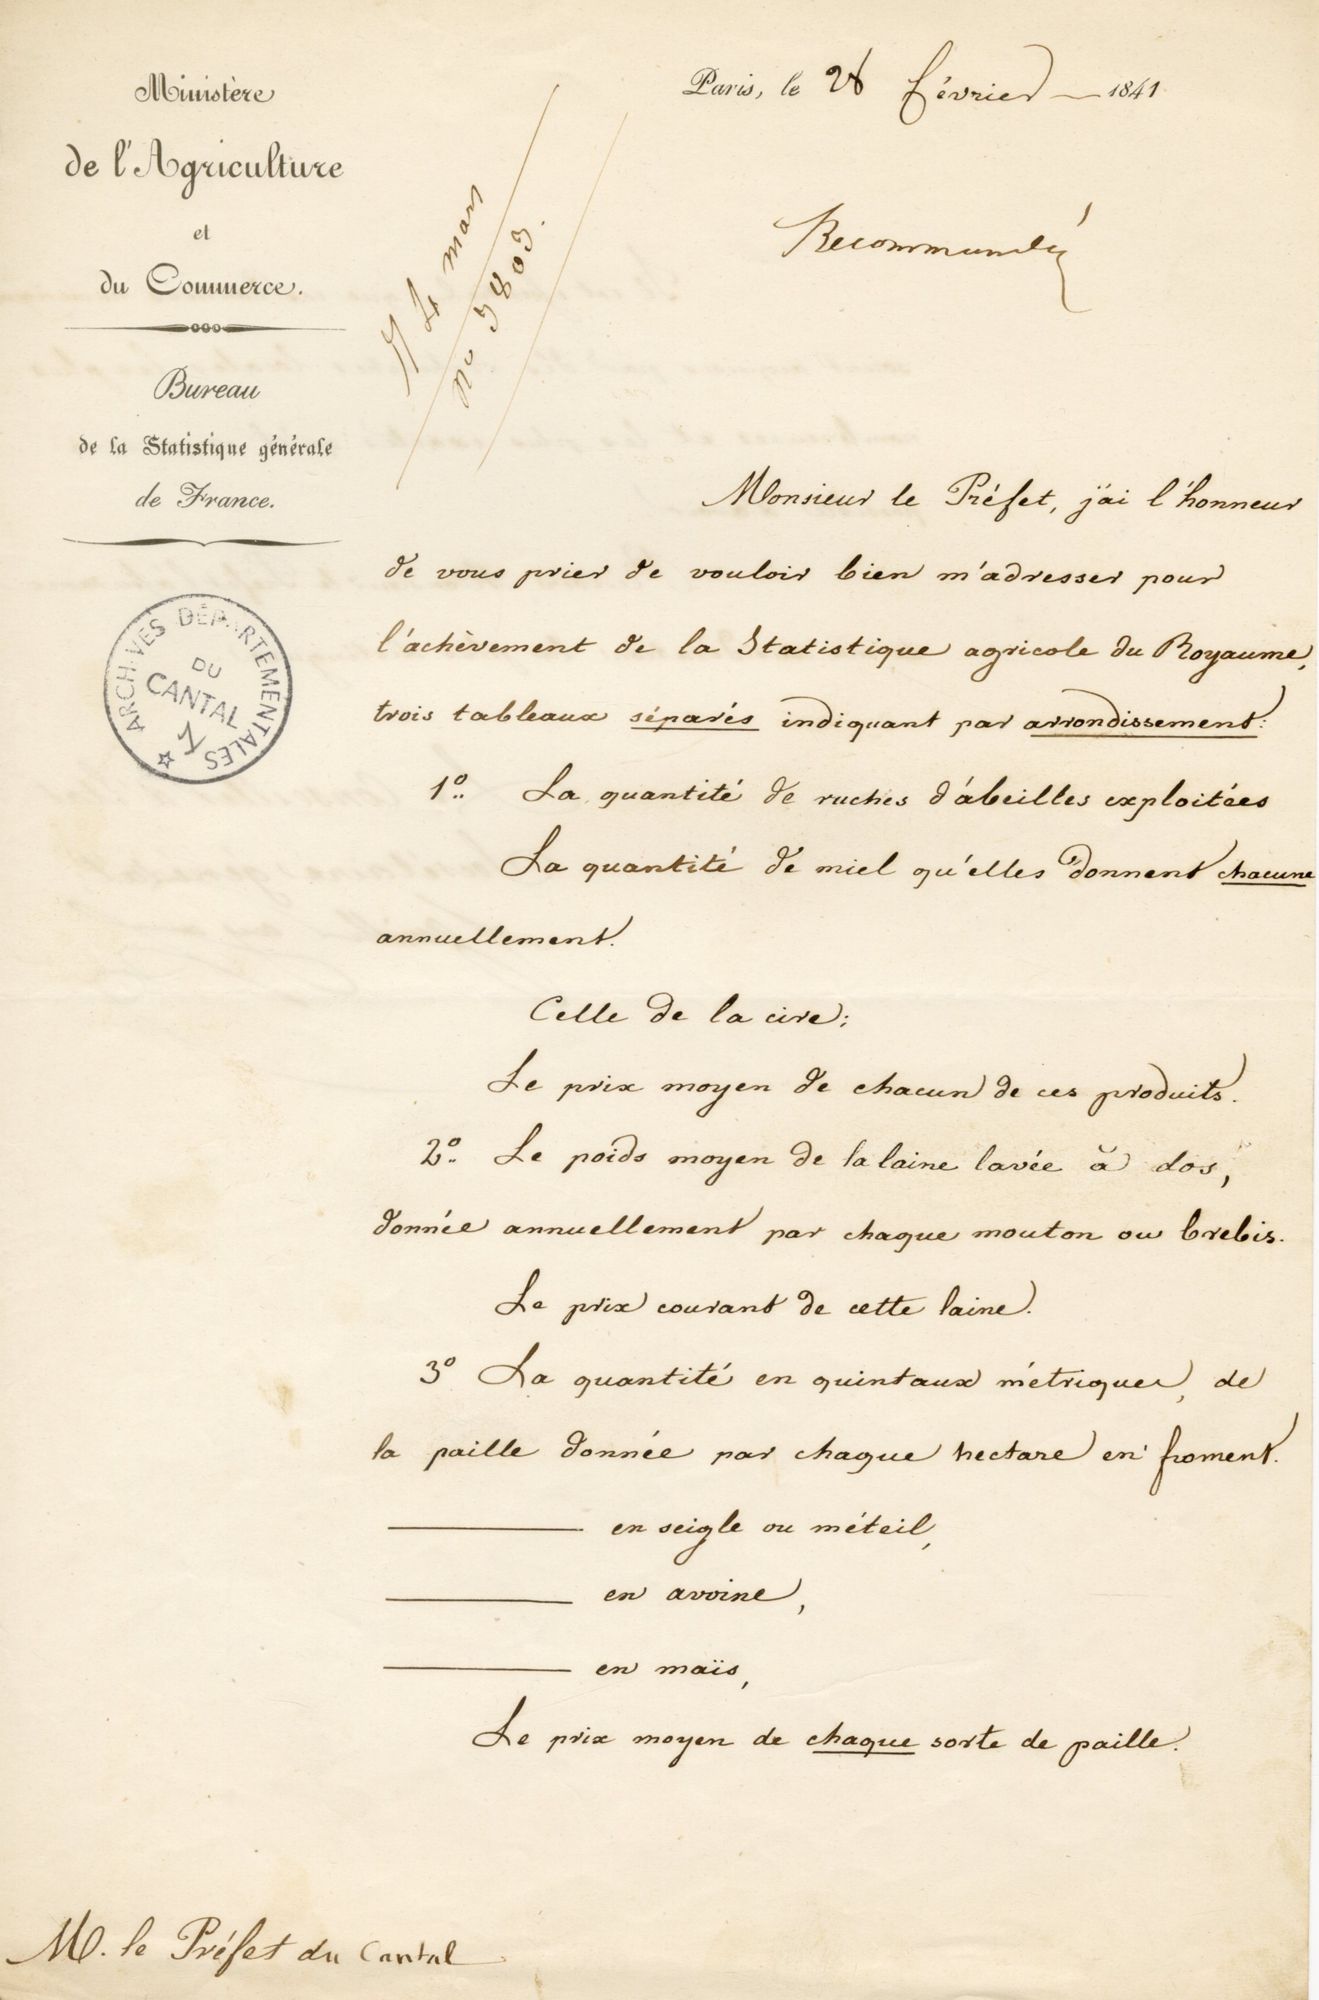 Ministère
de l'Agriculture
et
du Commerce.
Bureau
de la Statistique générale
de France.
ARCHIVES DÉPARTEMENTALES
DU
CANTAL
Paris, le 28 février 1841
4 mars
no 3803.
Recommandée
Monsieur le Préfet, j'ai l'honneur
de vous prier de vouloir bien m'adresser pour
l'achèvement de la Statistique agricole du Royaume,
trois tableaux séparés indiquant par arrondissement:
1o.. La quantité de ruches d'abeilles exploitées
La quantité de miel qu'elles donnent chacune
annuellement.
Celle de la cire;
Le prix moyen de chacun de ces produits.
2o.. Le poids moyen de la laine lavée à dos,
donnée annuellement par chaque mouton ou brebis.
Le prix courant de cette laine.
3o La quantité en quintaux métriques, de
la paille donnée par chaque hectare en froment.
——— en seigle ou méteil,
——— en avoine,
——— en maïs,
Le prix moyen de chaque sorte de paille.
M. le Préfet du Cantal